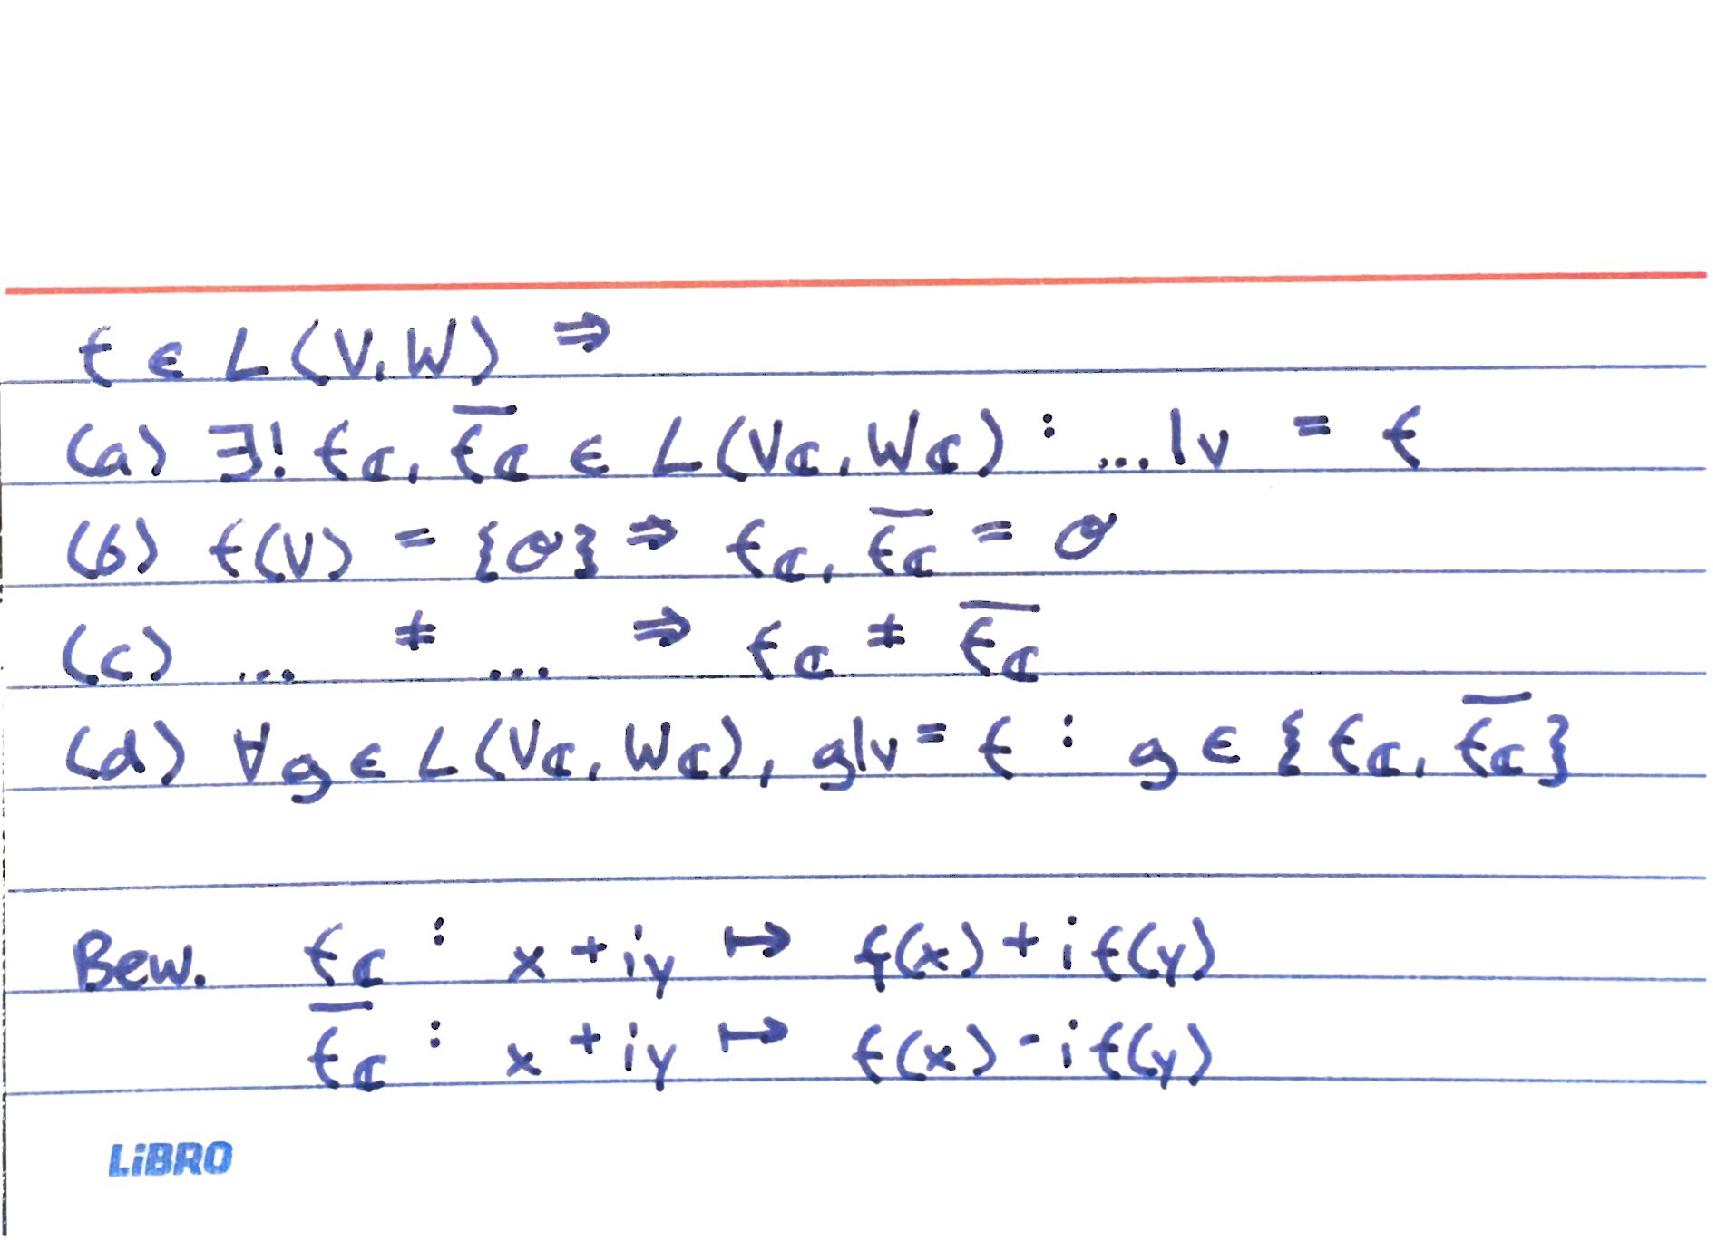 f ∈ L(V,W) ⇒
(a) ∃! f_ℂ, \overline{f_ℂ} ∈ L(V_ℂ, W_ℂ) : ...|_V = f
(b) f(V) = {0} ⇒ f_ℂ, \overline{f_ℂ} = 0
(c) ... ≠ ... ⇒ f_ℂ ≠ \overline{f_ℂ}
(d) ∀g ∈ L(V_ℂ, W_ℂ), g|_V = f : g ∈ {f_ℂ, \overline{f_ℂ}}
Bew. f_ℂ : x + iy ↦ f(x) + i f(y)
\overline{f_ℂ} : x + iy ↦ f(x) - i f(y)
LiBRO